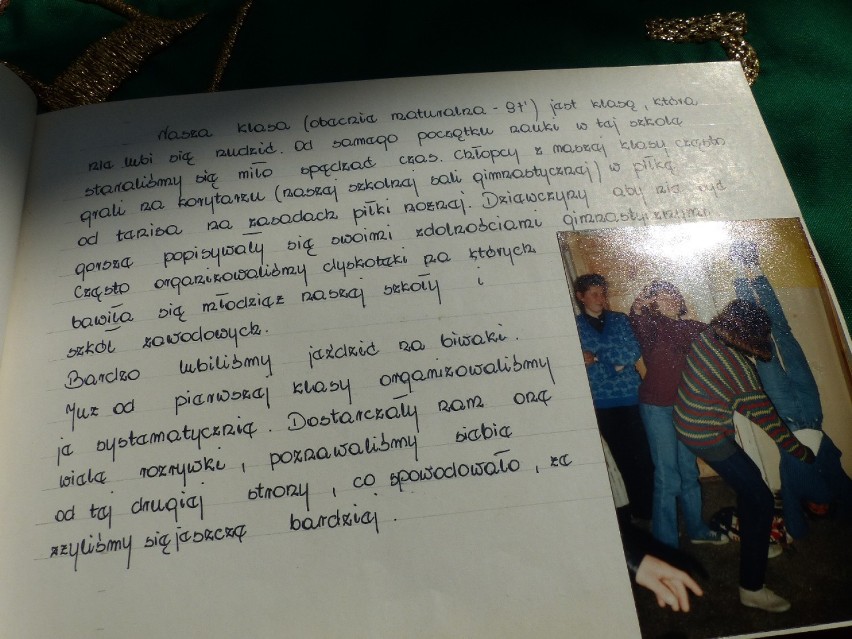 Nasza klasa (obecnie maturalna - 97') jest klasą, która
nie lubi się nudzić. Od samego początku nauki w tej szkole
staraliśmy się miło spędzać czas. Chłopcy z naszej klasy często
grali na korytarzu (naszej szkolnej sali gimnastycznej) w piłkę
od tenisa na zasadach piłki nożnej. Dziewczyny aby nie być
gorsze popisywały się swoimi zdolnościami gimnastycznymi.
Często organizowaliśmy dyskoteki na których
bawiła się młodzież naszej szkoły i
szkół zawodowych.
Bardzo lubiliśmy jeździć na biwaki.
Już od pierwszej klasy organizowaliśmy
je systematycznie. Dostarczały nam one
wiele rozrywki, poznawaliśmy siebie
od tej drugiej strony, co spowodowało, że
zżyliśmy się jeszcze bardziej.